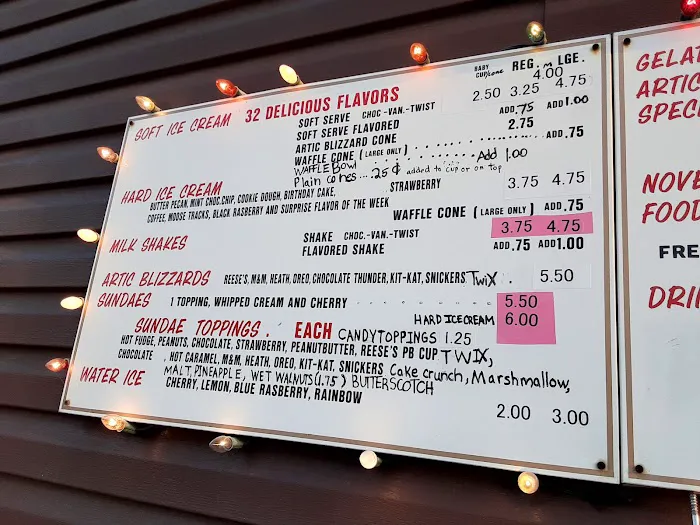 BABY CUP/CONE REG. m LGE.
4.00
SOFT ICE CREAM 32 DELICIOUS FLAVORS
SOFT SERVE CHOC-VAN-TWIST 2.50 3.25 4.75
SOFT SERVE FLAVORED ADD .75 ADD 1.00
ARTIC BLIZZARD CONE 2.75
WAFFLE CONE (LARGE ONLY) ADD .75
WAFFLE BOWL Add 1.00
Plain cones... 25¢ added to cup or on top
HARD ICE CREAM STRAWBERRY 3.75 4.75
BUTTER PECAN, MINT CHOC.CHIP, COOKIE DOUGH, BIRTHDAY CAKE.
COFFEE, MOOSE TRACKS, BLACK RASBERRY AND SURPRISE FLAVOR OF THE WEEK
WAFFLE CONE (LARGE ONLY) ADD .75
MILK SHAKES SHAKE CHOC.-VAN.-TWIST 3.75 4.75
FLAVORED SHAKE ADD .75 ADD 1.00
ARTIC BLIZZARDS REESE'S, M&M, HEATH, OREO, CHOCOLATE THUNDER, KIT-KAT, SNICKERS TWiX . 5.50
SUNDAES 1 TOPPING, WHIPPED CREAM AND CHERRY 5.50
HARD ICE CREAM 6.00
SUNDAE TOPPINGS . EACH CANDY TOPPINGS 1.25
HOT FUDGE, PEANUTS, CHOCOLATE, STRAWBERRY, PEANUTBUTTER, REESE'S PB CUP TWIX,
CHOCOLATE . HOT CARAMEL, M&M, HEATH, OREO, KIT-KAT, SNICKERS Cake crunch, Marshmallow,
MALT, PINEAPPLE, WET WALNUTS (1.75) BUTTERSCOTCH
WATER ICE CHERRY, LEMON, BLUE RASBERRY, RAINBOW 2.00 3.00
GELAT
ARTIC
SPEC
NOVE
FOOD
FRE
DRI